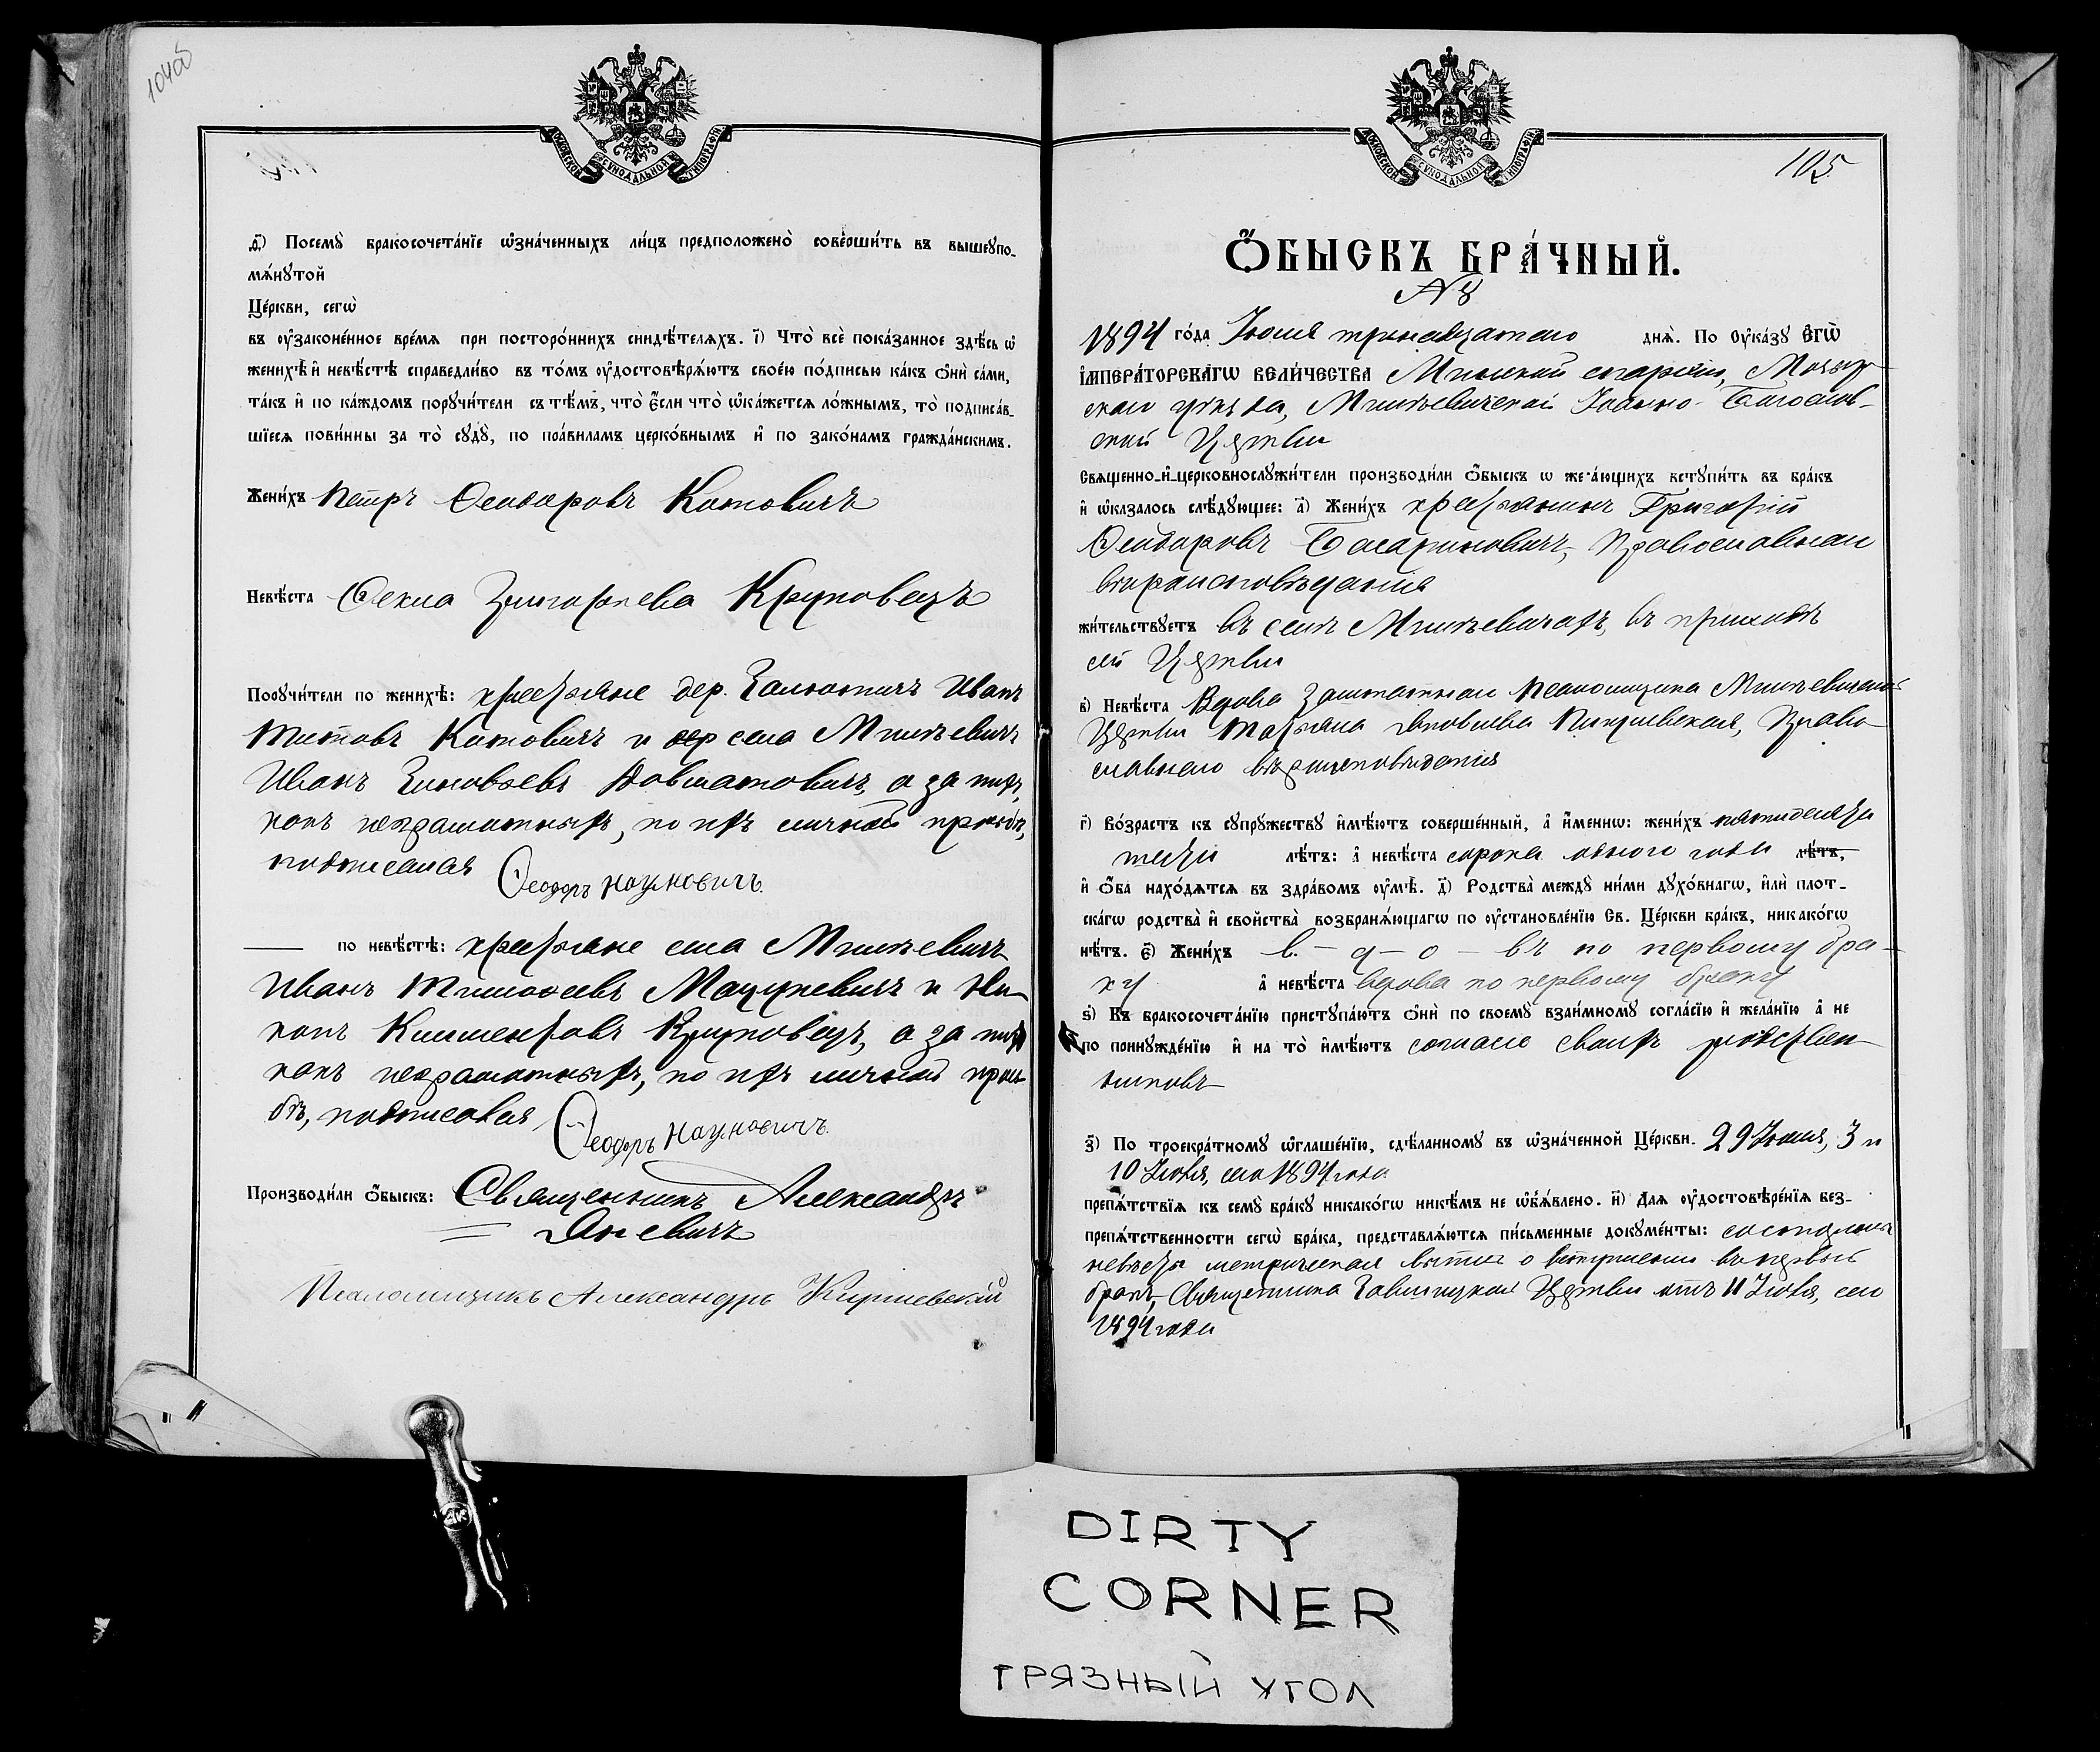 104об
МОСКОВСКОЙ СѴНОДАЛЬНОЙ ТИПОГРАФІИ
д҃і) Посемꙋ̀ бракосочета́нїе ѡ҆зна́ченныхъ ли́цъ предположено̀ соверши́ть въ вышеꙋпо-
мѧ́нꙋтой
Це́ркви, сегѡ̀
въ оу҆законе́нное вре́мѧ при посторо́ннихъ свидѣ́телѧхъ. і҃) Что̀ всѐ пока́занное здѣ́сь ѡ҆
женихѣ̀ и҆ невѣ́стѣ справедли́во въ то́мъ оу҆достовѣрѧ́ютъ свое́ю по́дписью ка́къ ѻ҆нѝ са́ми,
та́къ и҆ по ка́ждомъ порꙋчи́тели съ тѣ́мъ, что̀ є҆́сли что̀ ѡ҆ка́жетсѧ ло́жнымъ, то̀ подписа́в-
шїесѧ пови́нны за то̀ сꙋдꙋ̀, по пра́виламъ церко́внымъ и҆ по зако́намъ гражда́нскимъ.
Жени́хъ Петръ Ѳеодоровъ Котовичъ
Невѣ́ста Ѳекла Григорьева Круповецъ
Порꙋчи́тели по женихѣ̀: крестьяне дер. Иванъ
Титовъ Котовичъ и дер села Милевичъ
Иванъ Зиновьевъ Довматовичъ, а за нихъ,
какъ неграмотныхъ, по ихъ личной просьбѣ,
подписался Ѳеодоръ Наумовичъ.
по невѣ́стѣ: крестьяне села Милевичъ
Иванъ Тимофеевъ Мацукевичъ и Ни-
конъ Климентовъ Круповецъ, а за нихъ
какъ неграмотныхъ, по ихъ личной прось-
бѣ, подписался Ѳеодоръ Наумовичъ.
Производи́ли ѻ҆́быскъ: Священникъ Александръ
Яневичъ
Псаломщикъ Александръ Киркевскій
МОСКОВСКОЙ СѴНОДАЛЬНОЙ ТИПОГРАФІИ
105
Ѻ҆́БЫСКЪ БРА́ЧНЫЙ.
№ 8
1894 го́да Іюля тринадцатаго днѧ̀. По Оу҆ка́зꙋ Є҆гѡ̀
І҆МПЕРА́ТОРСКАГѠ ВЕЛИ́ЧЕСТВА Минской епархіи, Мозыр-
скаго уѣзда, Милевичской Іоанно-Богослов-
ской Церкви
Свѧщенно-и҆-церковнослꙋжи́тели производи́ли ѻ҆́быскъ ѡ же а́ющихъ встꙋпи́ть въ бра́къ
и҆ ѡ҆казалось слѣ́дꙋющее: а҃) Жени́хъ крестьянинъ Григорій
Ѳеодоровъ, Православнаго
вѣроисповѣданія
жи́тельствꙋетъ въ селѣ Милевичахъ, въ приходѣ
сей Церкви
в҃) Невѣ́ста Вдова Заштатнаго Псаломщика Милевичской
Церкви Татьяна Яковлева, Право-
славнаго вѣроисповѣданія
г҃) Во́зрастъ къ сꙋпрꙋ́жествꙋ и҆мѣ́ютъ соверше́нный, а҆ и҆́менно: жени́хъ пятидесяти
лѣ́тъ: а҆ невѣ́ста сорока одного года лѣ́тъ,
и҆ ѻ҆́ба нахо́дѧтсѧ въ здра́вомъ оу҆мѣ̀. д҃) Родства̀ междꙋ̀ ни́ми дꙋхо́внагѡ, и҆лѝ плот-
ска́гѡ родства̀ и҆ сво́йства̀ возбранѧ́ющагѡ по оу҆становле́нїю Св. Це́ркви бра́къ, никако́гѡ
нѣ́тъ. є҃) Жени́хъ в.-д-о-въ по первому бра-
ку а҆ невѣ́ста вдова по первому браку
ѕ҃) Къ бракосочета́нїю пристꙋпа́ютъ ѻ҆нѝ по своемꙋ̀ взаи́мномꙋ согла́сїю и҆ жела́нїю а҆ не
по принꙋжде́нїю и҆ на то̀ и҆мѣ́ютъ согласіе своихъ родствен-
никовъ
з҃) По троекра́тномꙋ ѡ҆глаше́нїю, сдѣ́ланномꙋ въ ѡ҆зна́ченной Це́ркви. 29 Іюня, 3 и
10 Іюля, сего 1894 года
препѧ́тствїѧ къ семꙋ̀ бра́кꙋ никако́гѡ никѣ́мъ не ѡ҆б̾ѧ́влено. и҃) Длѧ оу҆достовѣре́нїѧ без-
препѧ́тственности сегѡ̀ бра́ка, представлѧ́ютсѧ пи́сьменные докꙋме́нты: со стороны
невѣсты метрическая выпись о вступленіи въ первый
бракъ, Священника Церкви отъ 11 Іюля, сего
1894 года
DIRTY
CORNER
ГРЯЗНЫЙ УГОЛ